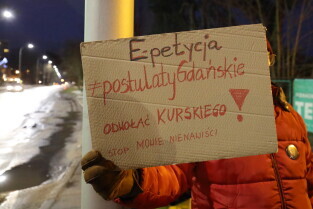 E-petycja
#postulatyGdańskie
ODWOŁAĆ KURSKIEGO!
STOP MOWIE NIENAWIŚCI